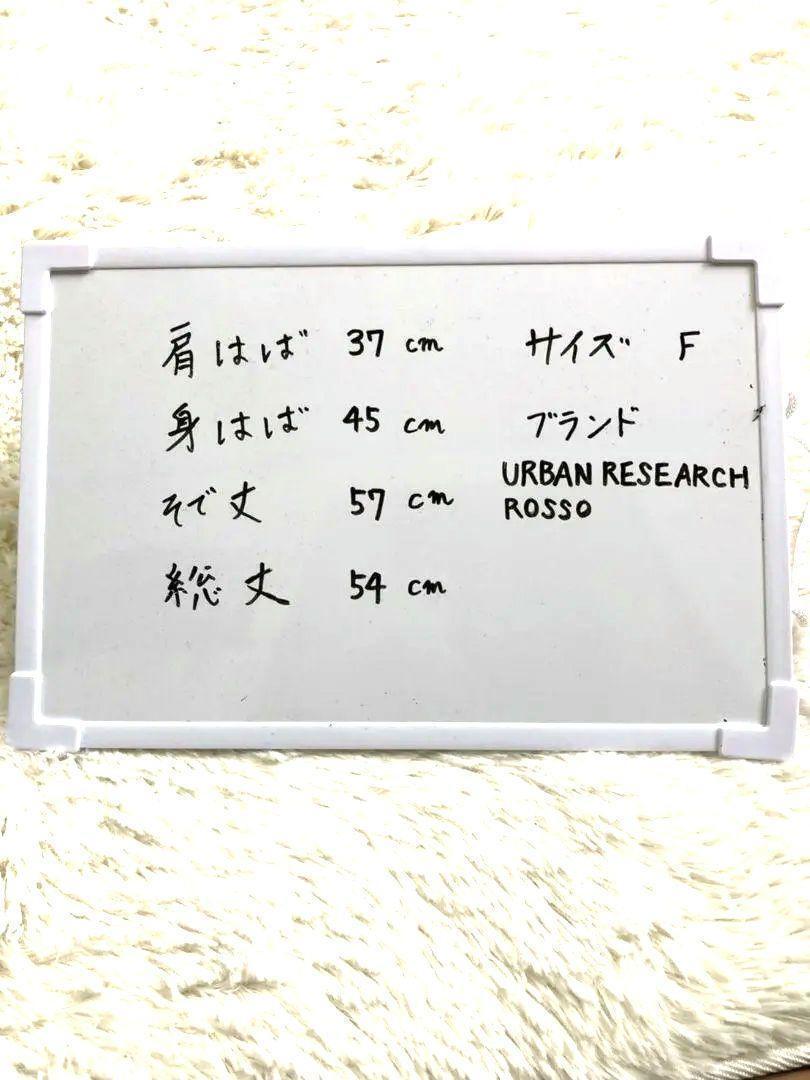 肩はば 37 cm
身はば 45 cm
そで丈 57 cm
総丈 54 cm
サイズ F
ブランド
URBAN RESEARCH
ROSSO